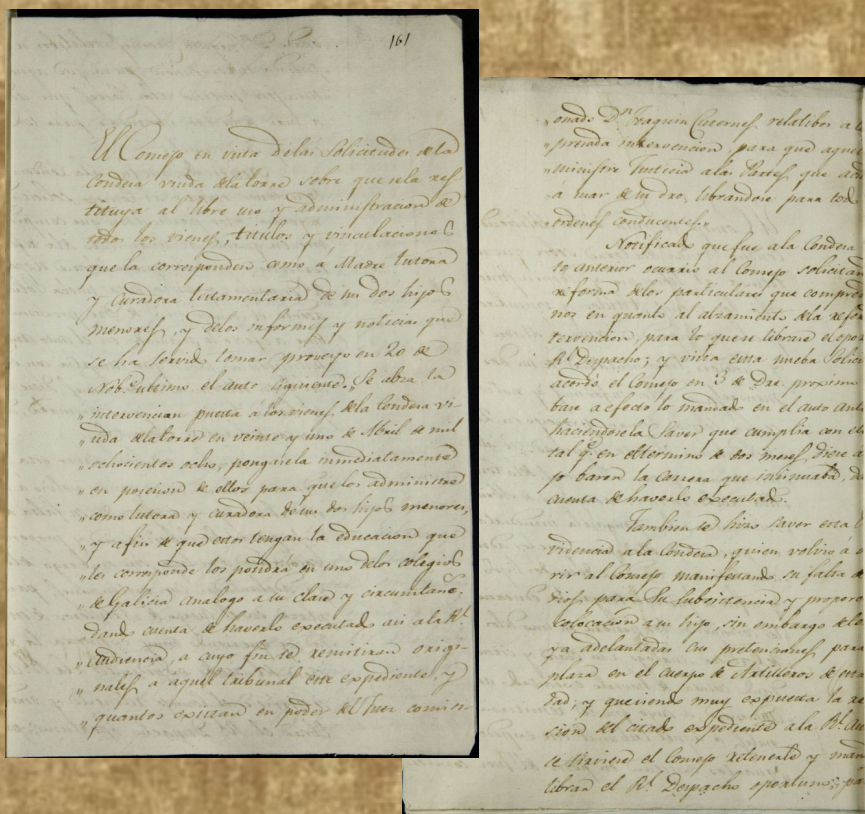 161
El Consejo en vista delas Solicitudes dela
Condesa viuda dela torre sobre que sela res
tituya al libre uso y administracion de
todos los vienes, titulos y vinculaciones
que la corresponden como a Madre tutora
y Curadora testamentaria de sus dos hijos
menores, y delos informes y noticias que
se ha servido tomar proveyo en 20 de
Nobre ultimo el auto siguiente. Se alza la
"intervencion puesta a los vienes dela Condesa vi-
"uda dela torre en veinte y uno de Abril de mil
"ochocientos ocho; pongasela inmediatamente
"en posesion de ellos para que los administre
"como tutora y curadora de sus dos hijos menores,
"y afin de que estos tengan la educacion que
"les corresponde los pondrá en uno delos colegios
"de Galicia analogo a su clase y circunstancs
dando cuenta de haverlo executado asi ala Rl
"Audiencia, a cuyo fin se remitiran origi-
"nales a aquel tribunal este expediente, y
"quantos existan en poder del Juez comisi-
"onado Dn Joaquin Cisernes relatibos a l
"presada intervencion, para que aquel
"ministre Justicia alas Partes que
"á usar de su dro, librandose para todo
"ordenes conducentes."
Notificado que fue ala Condesa
to anterior ocurrio al Consejo solicitan
reforma delos particulares que compre
nos en quanto al alzamiento dela refer
tervencion, para lo que se librase el opor
Rl Despacho; y vista esta nueba Solici
acordó el Consejo en 3 de Dre proximo
base a efecto lo mandado en el auto ant
haciendosela Saver que cumplia con el
tal qe en el termino de dos meses diese a
jo baron la carrera que insinuaba, da
cuenta de haverlo executado.
Tambien se hizo saver esta
videncia ala Condesa, quien volvió á o
rir al Consejo manifestando su falta d
dios para su subsistencia y proporc
colocacion a su hijo, sin embargo de
ya adelantadas sus pretensiones para
plaza en el cuerpo de Artilleros de esta
dad; y queriendo muy expuesta la re
sion del citado expediente ala Rl Au
se sirviese el Consejo retenerle y man
librar el Rl Despacho oportuno; pa